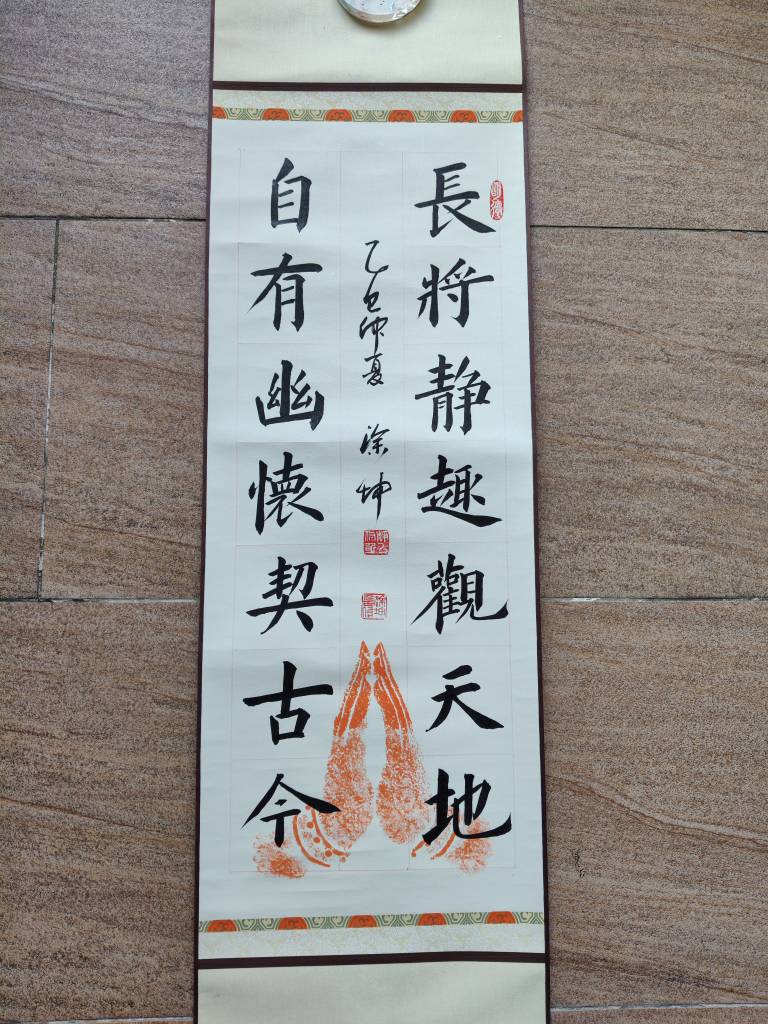 長將静趣觀天地
自有幽懷契古今
乙巳仲夏 徐坤